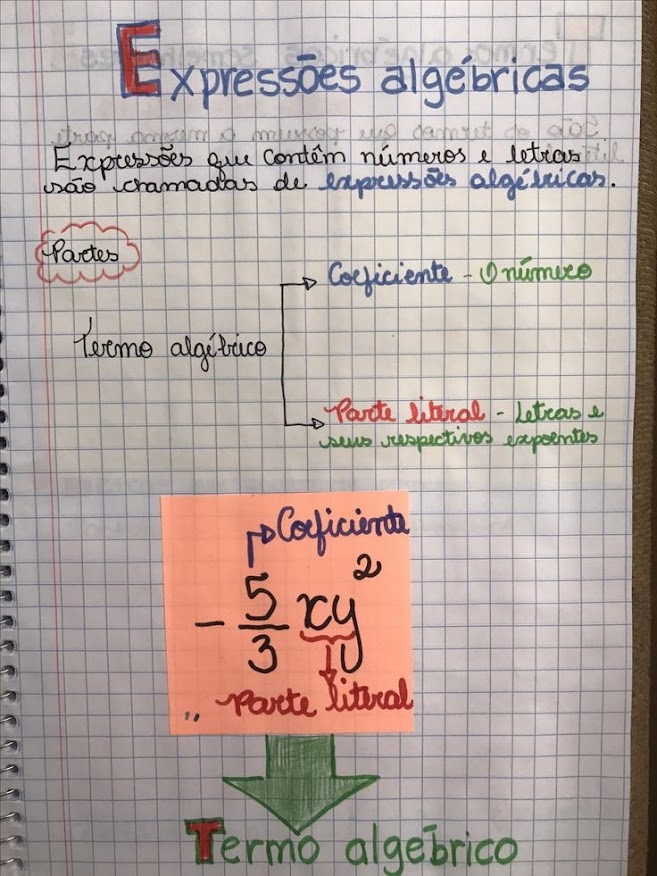 Expressões algébricas
Expressões que contêm números e letras
são chamadas de expressões algébricas.
Partes
Termo algébrico
Coeficiente - O número
Parte literal - Letras e
seus respectivos expoentes
Coeficiente
- 5/3 xy²
Parte literal
Termo algébrico